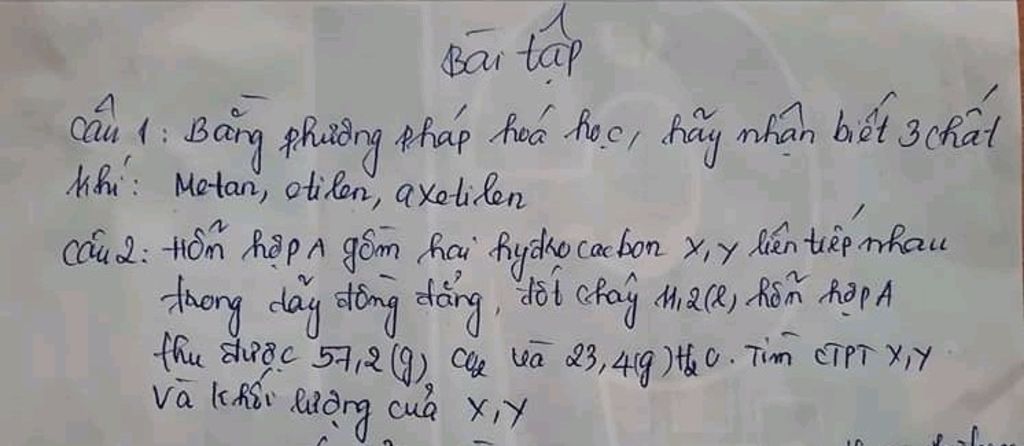 Bài tập
Câu 1: Bằng phương pháp hoá học, hãy nhận biết 3 chất
khí: Metan, etilen, axetilen
Câu 2: Hỗn hợp A gồm hai hydrocacbon X, Y liên tiếp nhau
trong dãy đồng đẳng, đốt cháy 11,2(l) hỗn hợp A
thu được 57,2(g) CO2 và 23,4(g) H2O. Tìm CTPT X,Y
và khối lượng của X,Y